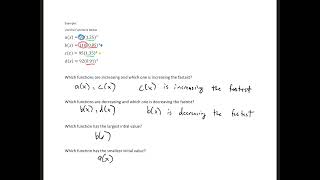 Example:
Use the functions below
a(x) = (1.25)ˣ
b(x) = (0.85)ˣ
c(x) = 95(1.35)ˣ
d(x) = 92(0.91)ˣ
Which functions are increasing and which one is increasing the fastest?
a(x), c(x) c(x) is increasing the fastest
Which functions are decreasing and which one is decreasing the fastest?
b(x), d(x) b(x) is decreasing the fastest
Which function has the largest intial value?
b(x)
Which function has the smallest initial value?
a(x)